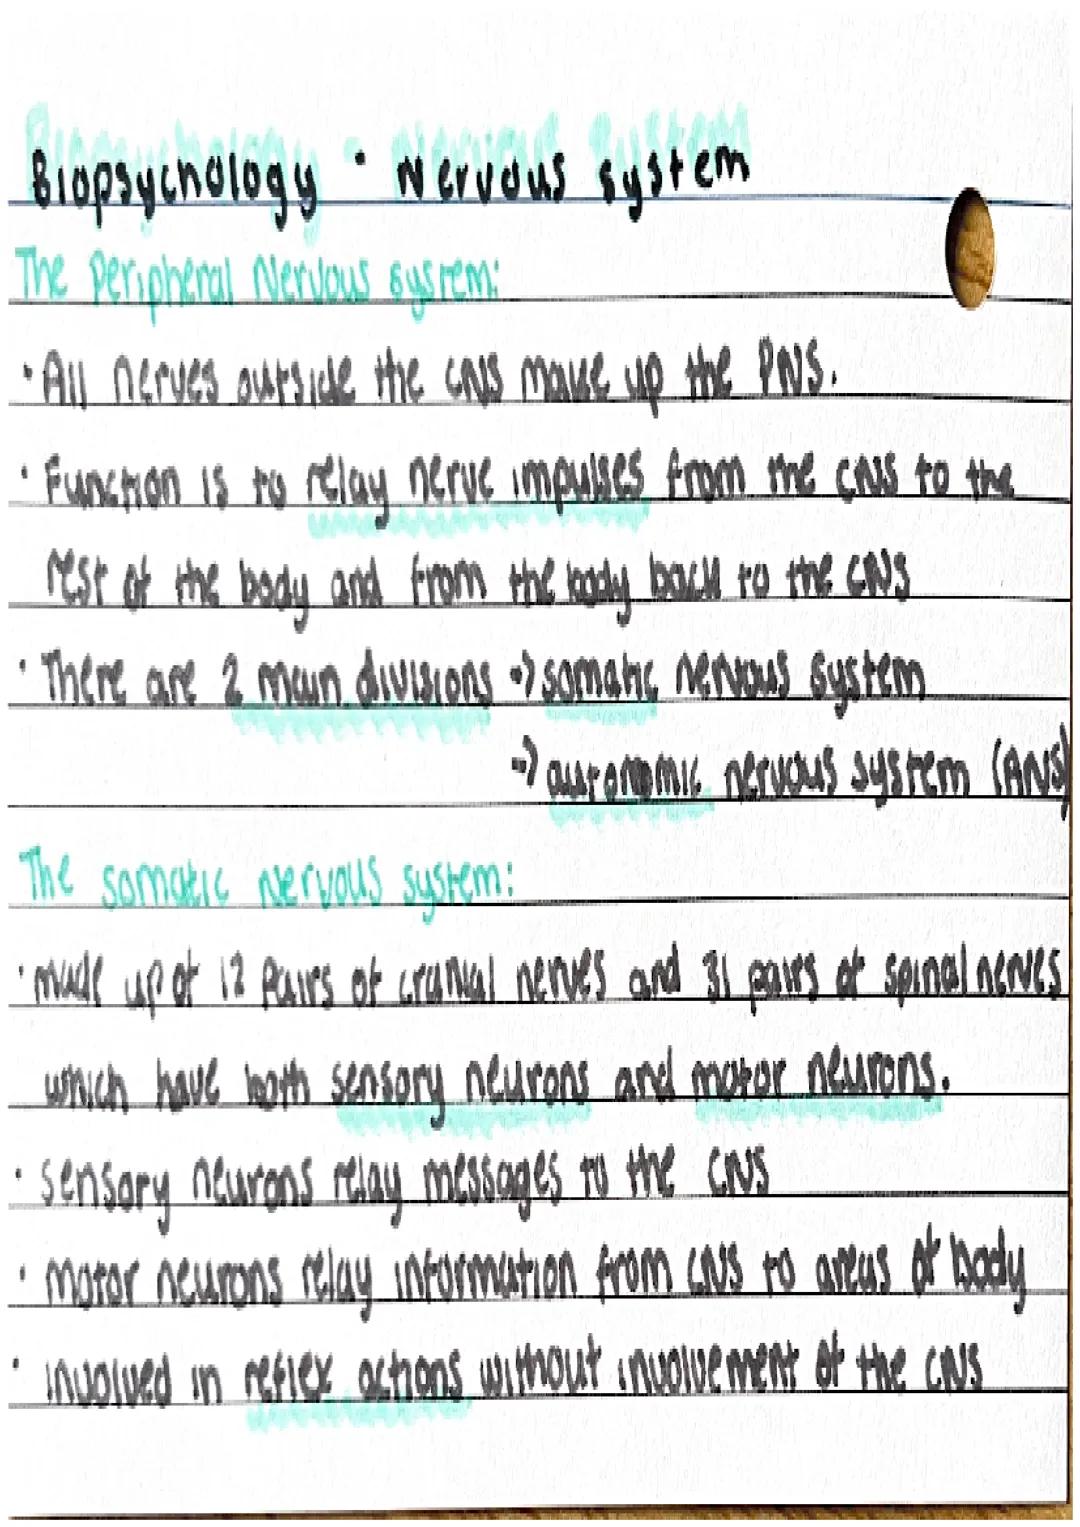 Biopsychology · Nervous system
The Peripheral Nervous system:
· All nerves outside the CNS make up the PNS.
· Function is to relay nerve impulses from the CNS to the
rest of the body and from the body back to the CNS
· There are 2 main divisions -> somatic nervous system
-> autonomic nervous system (ANS)
The somatic nervous system:
· made up of 12 Pairs of cranial nerves and 31 pairs of spinal nerves
which have both sensory neurons and motor neurons.
· sensory neurons relay messages to the CNS
· motor neurons relay information from CNS to areas of body
· involved in reflex actions without involvement of the CNS